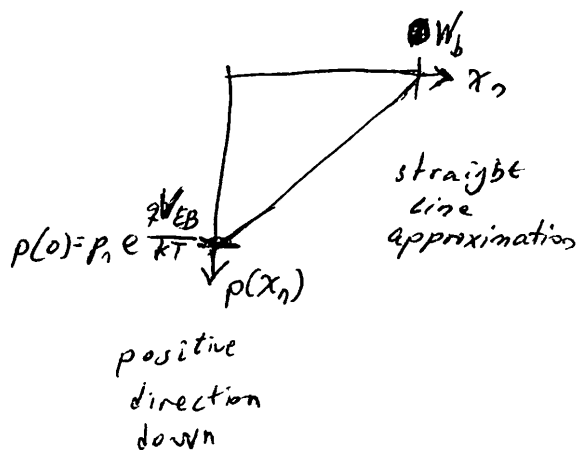 W_b
x_n
straight
line
approximation
p(0) = p_n e^{qV_{EB}/kT}
p(x_n)
positive
direction
down